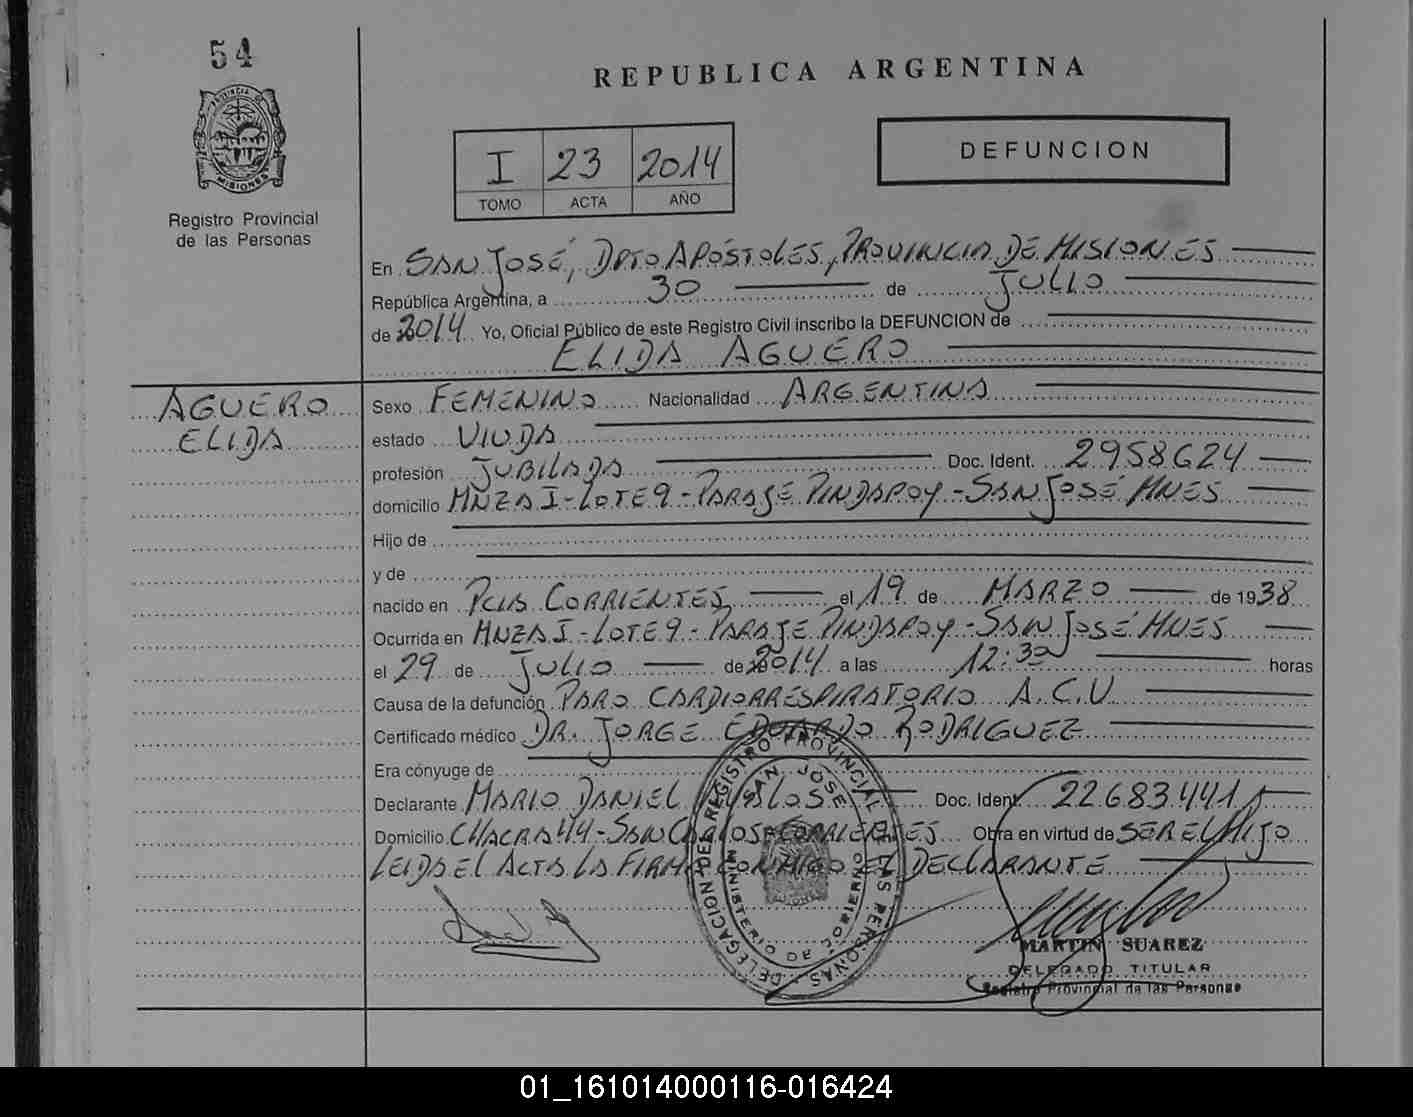 54
REPUBLICA ARGENTINA
PROVINCIA DE
MISIONES
Registro Provincial
de las Personas
I 23 2014
TOMO ACTA AÑO
DEFUNCION
En SAN JOSÉ, DPTO APÓSTOLES, PROVINCIA DE MISIONES
República Argentina, a 30 de JULIO
de 2014 Yo, Oficial Público de este Registro Civil inscribo la DEFUNCION de
ELIDA AGUERO
AGUERO
ELIDA
Sexo FEMENINO Nacionalidad ARGENTINA
estado VIUDA
profesión JUBILADA Doc. Ident. 2958624
domicilio MNZA I - LOTE 9 - PARAJE PINDAPOY - SAN JOSÉ MNES
Hijo de
y de
nacido en PCIA CORRIENTES el 19 de MARZO de 1938
Ocurrida en MNZA I - LOTE 9 - PARAJE PINDAPOY - SAN JOSÉ MNES
el 29 de JULIO de 2014 a las 12:30 horas
Causa de la defunción PARO CARDIORRESPIRATORIO A.C.V
Certificado médico DR. JORGE EDUARDO RODRIGUEZ
Era cónyuge de
Declarante MARIO DANIEL Doc. Ident. 22.683.441
Domicilio CHACRA 44 - SAN CARLOS - CORRIENTES Obra en virtud de SER EL HIJO
LEIDA EL ACTA LA FIRMA CONMIGO EL DECLARANTE
DELEGACION DEL REGISTRO PROVINCIAL DE LAS PERSONAS
SAN JOSE
MINISTERIO DE GOBIERNO
MARTIN SUAREZ
DELEGADO TITULAR
Registro Provincial de las Personas
01_161014000116-016424